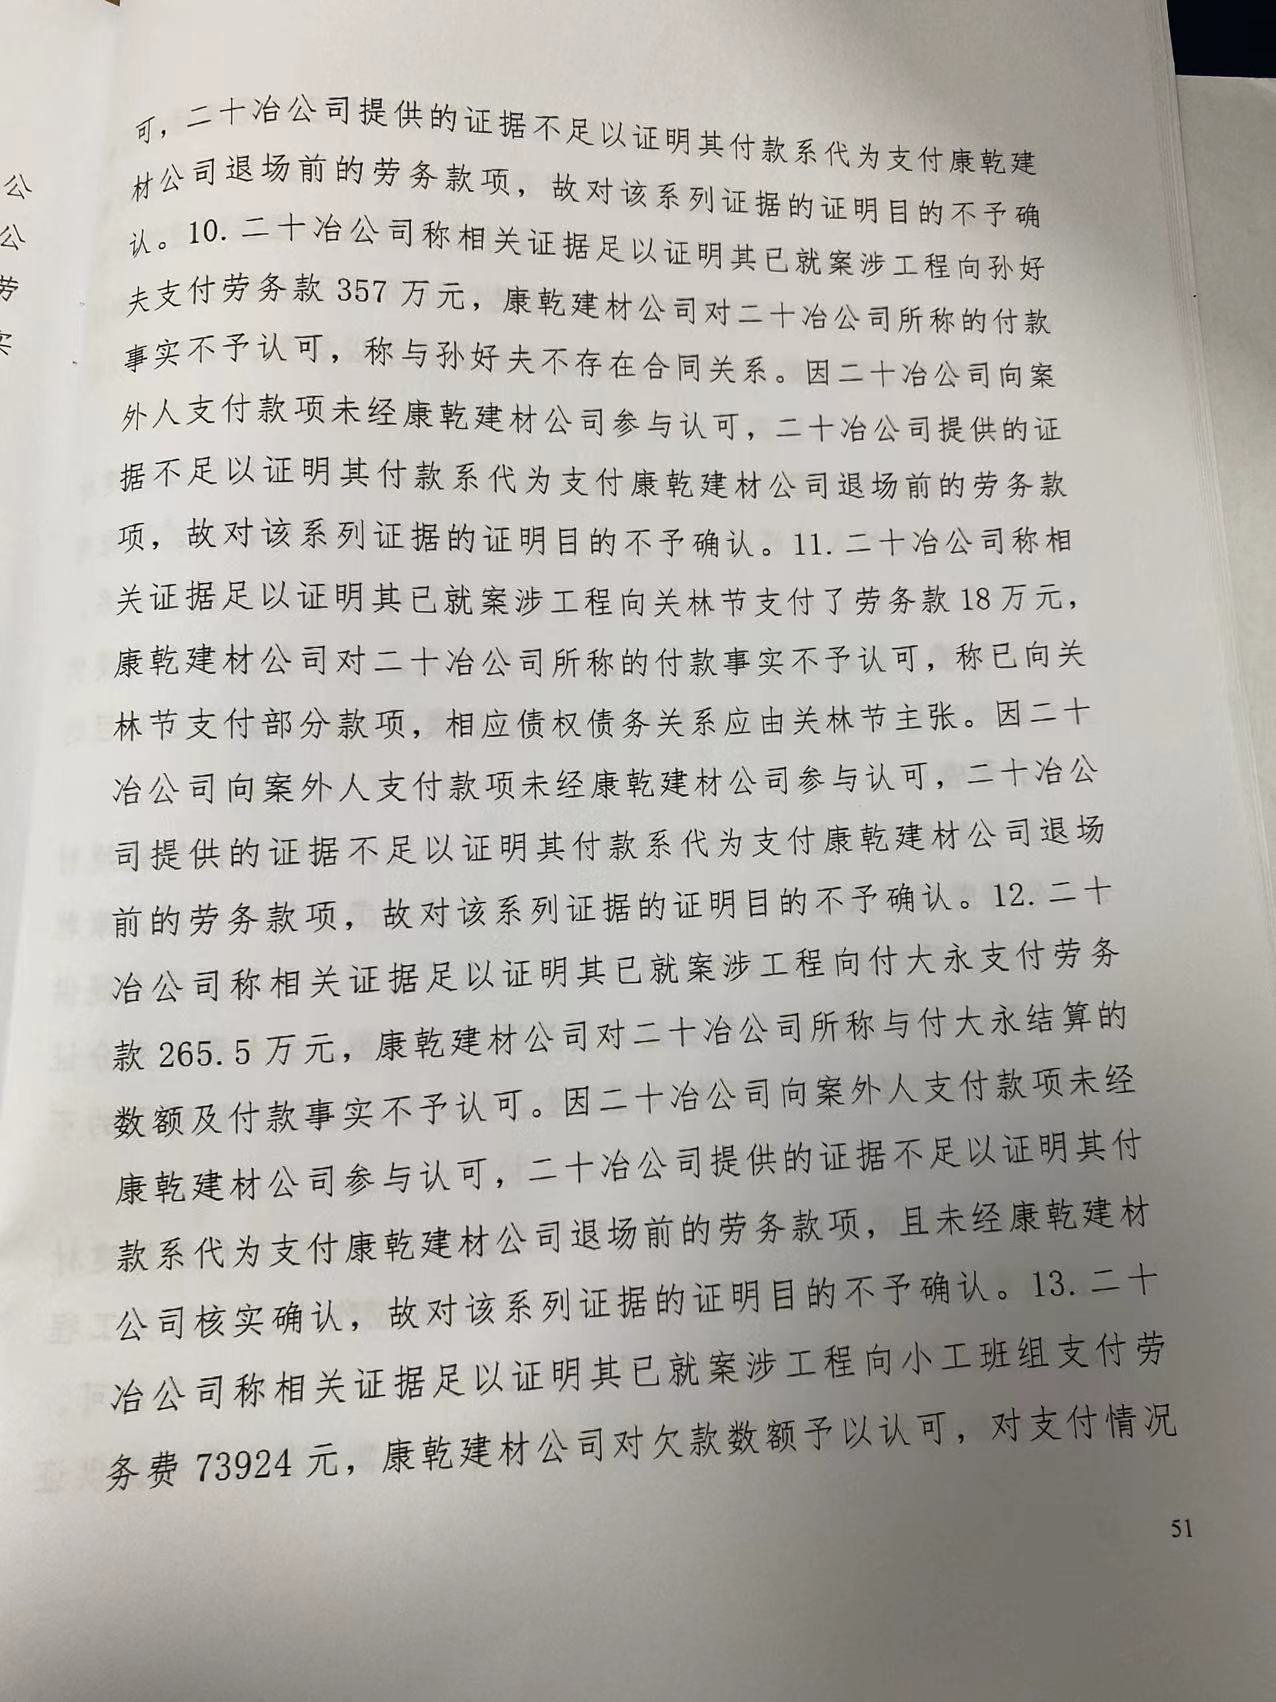 可，二十冶公司提供的证据不足以证明其付款系代为支付康乾建
材公司退场前的劳务款项，故对该系列证据的证明目的不予确
认。10.二十冶公司称相关证据足以证明其已就案涉工程向孙好
夫支付劳务款 357 万元，康乾建材公司对二十冶公司所称的付款
事实不予认可，称与孙好夫不存在合同关系。因二十冶公司向案
外人支付款项未经康乾建材公司参与认可，二十冶公司提供的证
据不足以证明其付款系代为支付康乾建材公司退场前的劳务款
项，故对该系列证据的证明目的不予确认。11.二十冶公司称相
关证据足以证明其已就案涉工程向关林节支付了劳务款 18 万元，
康乾建材公司对二十冶公司所称的付款事实不予认可，称已向关
林节支付部分款项，相应债权债务关系应由关林节主张。因二十
冶公司向案外人支付款项未经康乾建材公司参与认可，二十冶公
司提供的证据不足以证明其付款系代为支付康乾建材公司退场
前的劳务款项，故对该系列证据的证明目的不予确认。12.二十
冶公司称相关证据足以证明其已就案涉工程向付大永支付劳务
款 265.5 万元，康乾建材公司对二十冶公司所称与付大永结算的
数额及付款事实不予认可。因二十冶公司向案外人支付款项未经
康乾建材公司参与认可，二十冶公司提供的证据不足以证明其付
款系代为支付康乾建材公司退场前的劳务款项，且未经康乾建材
公司核实确认，故对该系列证据的证明目的不予确认。13.二十
冶公司称相关证据足以证明其已就案涉工程向小工班组支付劳
务费 73924 元，康乾建材公司对欠款数额予以认可，对支付情况
51
公
公
劳